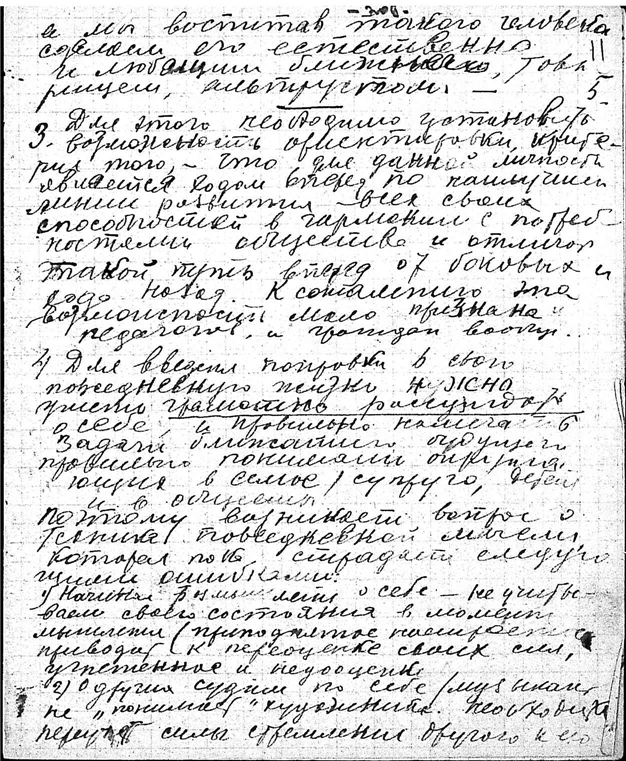 а мы воспитав такого человека
сделаем его естественно
и любящим ближнего, това
рищем, альтруистом. —
11
5
3. Для этого необходимо установить
возможность ориентировки, крите-
рия того, – что для данной личности
является ходом вперед по наилучшей
линии развития – всех своих
способностей в гармонии с потреб-
ностями общества и отличая
такой путь вперед от боковых и
хода назад. К сожалению эта
возможность мало признана и
педагогов, и граждан вообще..
4) Для введения поправки в свою
повседневную жизнь нужно
уметь грамотно рассуждать
о себе, и правильно намечать
задачи ближайшего будущего
правильно понимать окружа
ющих в семье / супруго, детей
и в общении
поэтому возникает вопрос о
технике повседневной мысли,
которая пока страдает следую
щими ошибками:
1) Начиная размышления о себе – не учиты-
ваем своего состояния в момент
мышления (приподнятое настроение
приводит к переоценке своих сил,
угнетенное к недооценке
2) О других судим по себе /музыкант
не "понимает" художника. Необходимо
силы стремления другого к его